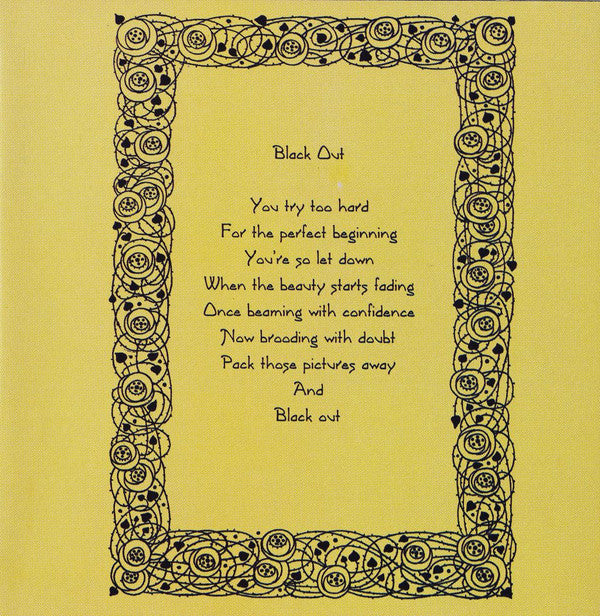 Black Out
You try too hard
For the perfect beginning
You're so let down
When the beauty starts fading
Once beaming with confidence
Now brooding with doubt
Pack those pictures away
And
Black out